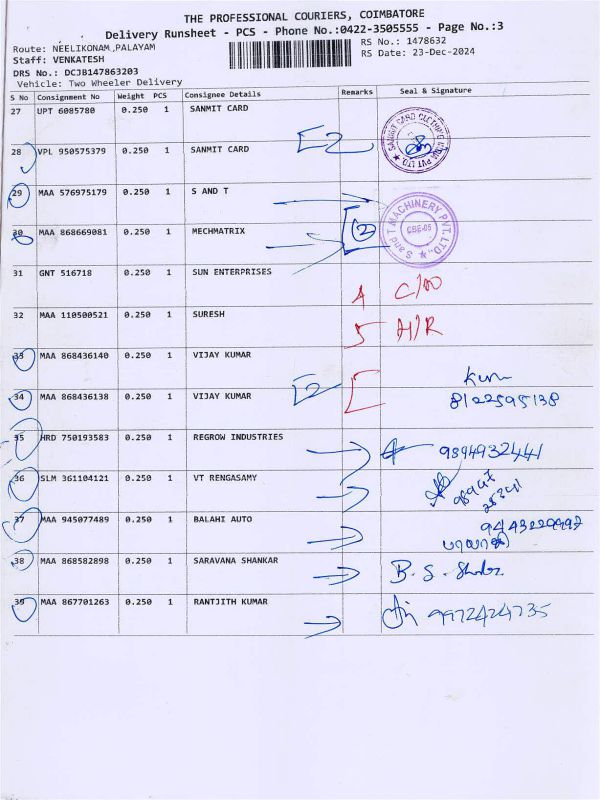 THE PROFESSIONAL COURIERS, COIMBATORE
Delivery Runsheet - PCS - Phone No.:0422-3505555 - Page No.:3
Route: NEELIKONAM,PALAYAM
RS No.: 1478632
Staff: VENKATESH
RS Date: 23-Dec-2024
DRS No.: DCJB147863203
Vehicle: Two Wheeler Delivery
S No Consignment No Weight PCS Consignee Details Remarks Seal & Signature
27 UPT 6085780 0.250 1 SANMIT CARD
SANMIT CARD CLOTHING PVT LTD
28 VPL 950575379 0.250 1 SANMIT CARD
29 MAA 576975179 0.250 1 S AND T
S and T MACHINERY PVT. LTD. CBE-05
30 MAA 868669081 0.250 1 MECHMATRIX 2
31 GNT 516718 0.250 1 SUN ENTERPRISES
4 C/oo
32 MAA 110500521 0.250 1 SURESH
5 H/R
33 MAA 868436140 0.250 1 VIJAY KUMAR
34 MAA 868436138 0.250 1 VIJAY KUMAR
8122595138
35 HRD 750193583 0.250 1 REGROW INDUSTRIES
9894932441
36 SLM 361104121 0.250 1 VT RENGASAMY
37 MAA 945077489 0.250 1 BALAHI AUTO
9443229997
38 MAA 868582898 0.250 1 SARAVANA SHANKAR
B. S.
39 MAA 867701263 0.250 1 RANTJITH KUMAR
9972424735